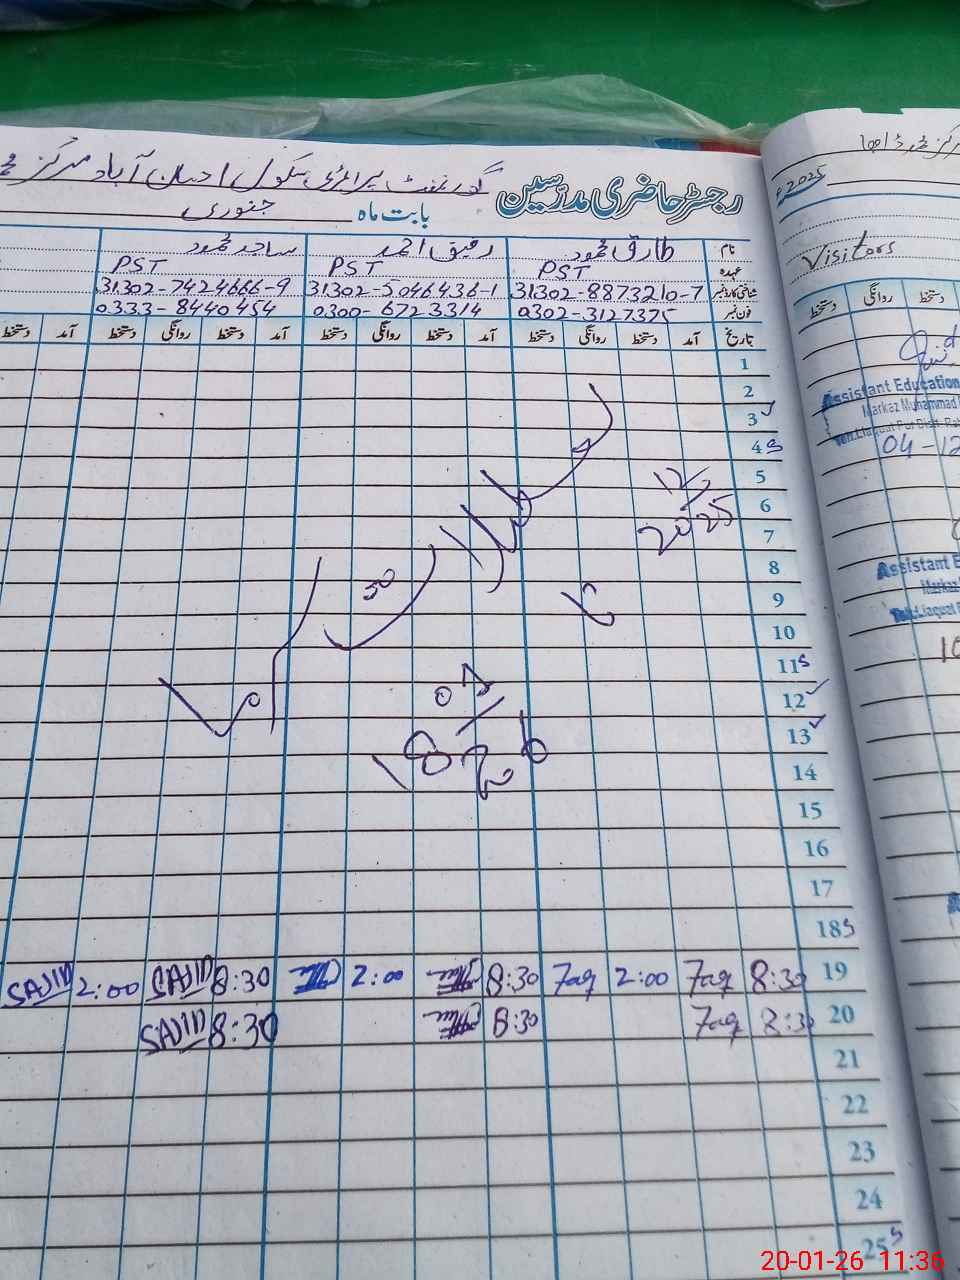 رجسٹر حاضری مدرسین گورنمنٹ پرائمری سکول احسان آباد مرکز
بابت ماہ جنوری
نام طارق محمود رفیق احمد ساجد محمود
عہدہ PST PST PST
شناختی کارڈ نمبر 31302-8873210-7 31302-5046436-1 31302-7424666-9
فون نمبر 0302-3127375 0300-6723314 0333-8440454
تاریخ آمد دستخط روانگی دستخط آمد دستخط روانگی دستخط آمد دستخط روانگی دستخط
1
2
3
4 S
5
6
7
8
9
10
11 S
12
13
14
15
16
17
18 S
19 8:30 Taq 2:00 Taq 8:30 2:00 8:30 SAJID 2:00 SAJID
20 8:30 Taq 8:30 8:30 SAJID
21
22
23
24
25 S
موسم سرما
12/2025
20
تا
18/01/26
2025
Visitors
دستخط روانگی دستخط
Assistant Education
Markaz Muhammad
Teh. Liaquat Pur Distt. Ra
04-12
Assistant E
Markaz
Teh. Liaquat P
10
20-01-26 11:36